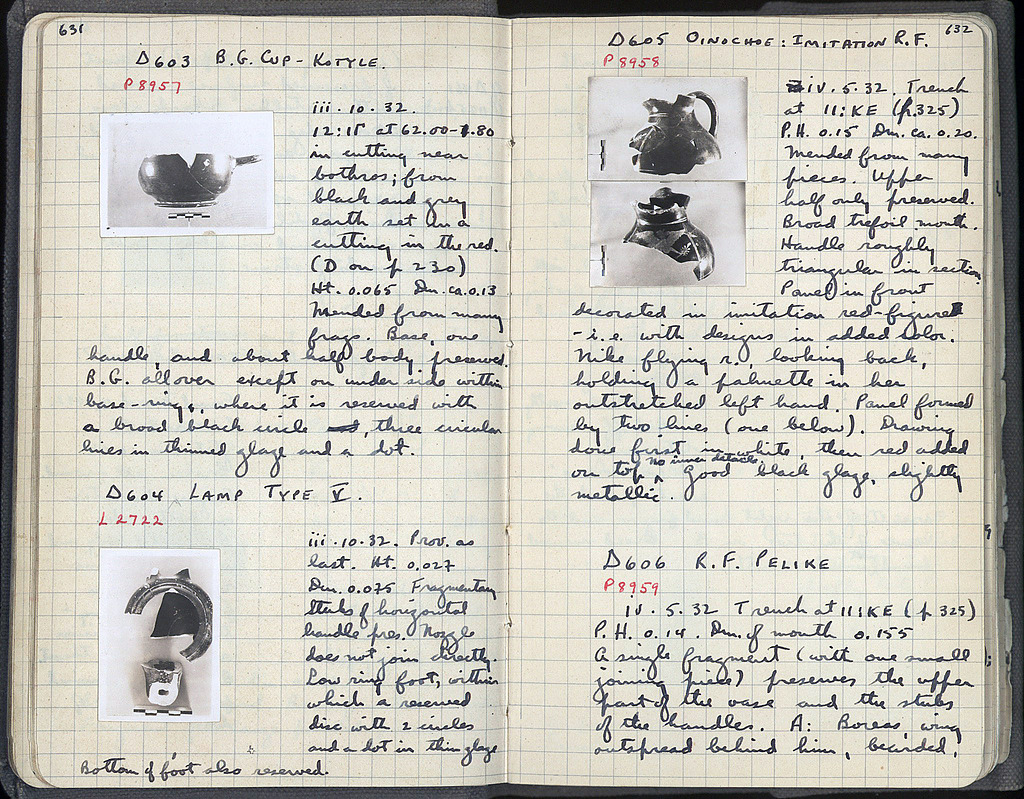 631
D603 B.G. CUP - KOTYLE.
P 8957
iii.10.32.
12:ΙΓ at 62.00-1.80
in cutting near
bothros; from
black and grey
earth set in a
cutting in the red.
(D on p 230)
Ht. 0.065 Dm. ca. 0.13
Mended from many
frags. Base, one
handle, and about half body preserved.
B.G. all over except on under side within
base-ring, where it is reserved with
a broad black circle, three circular
lines in thinned glaze and a dot.
D604 LAMP TYPE V.
L 2722
iii.10.32. Prov. as
last. Ht. 0.027
Dm. 0.075 Fragmentary
Stubs of horizontal
handle pres. Nozzle
does not join directly.
Low ring foot, within
which a reserved
disc with 2 circles
and a dot in thin glaze
Bottom of foot also reserved.
632
D605 OINOCHOE: IMITATION R.F.
P 8958
iv.5.32. Trench
at 11:KE (p.325)
P.H. 0.15 Dm. ca. 0.20.
Mended from many
pieces. Upper
half only preserved.
Broad trefoil mouth.
Handle roughly
triangular in section.
Panel in front
decorated in imitation red-figure
- i.e. with designs in added color.
Nike flying r., looking back,
holding a palmette in her
outstretched left hand. Panel formed
by two lines (one below). Drawing
done first in white, then red added
on top. ^ no inner details. Good black glaze, slightly
metallic.
D606 R.F. PELIKE
P 8959
iv.5.32 Trench at 11:KE (p 325)
P.H. 0.14. Dm. of mouth 0.155
A single fragment (with one small
joining piece) preserves the upper
part of the vase and the stubs
of the handles. A: Boreas, wing
outspread behind him, bearded,